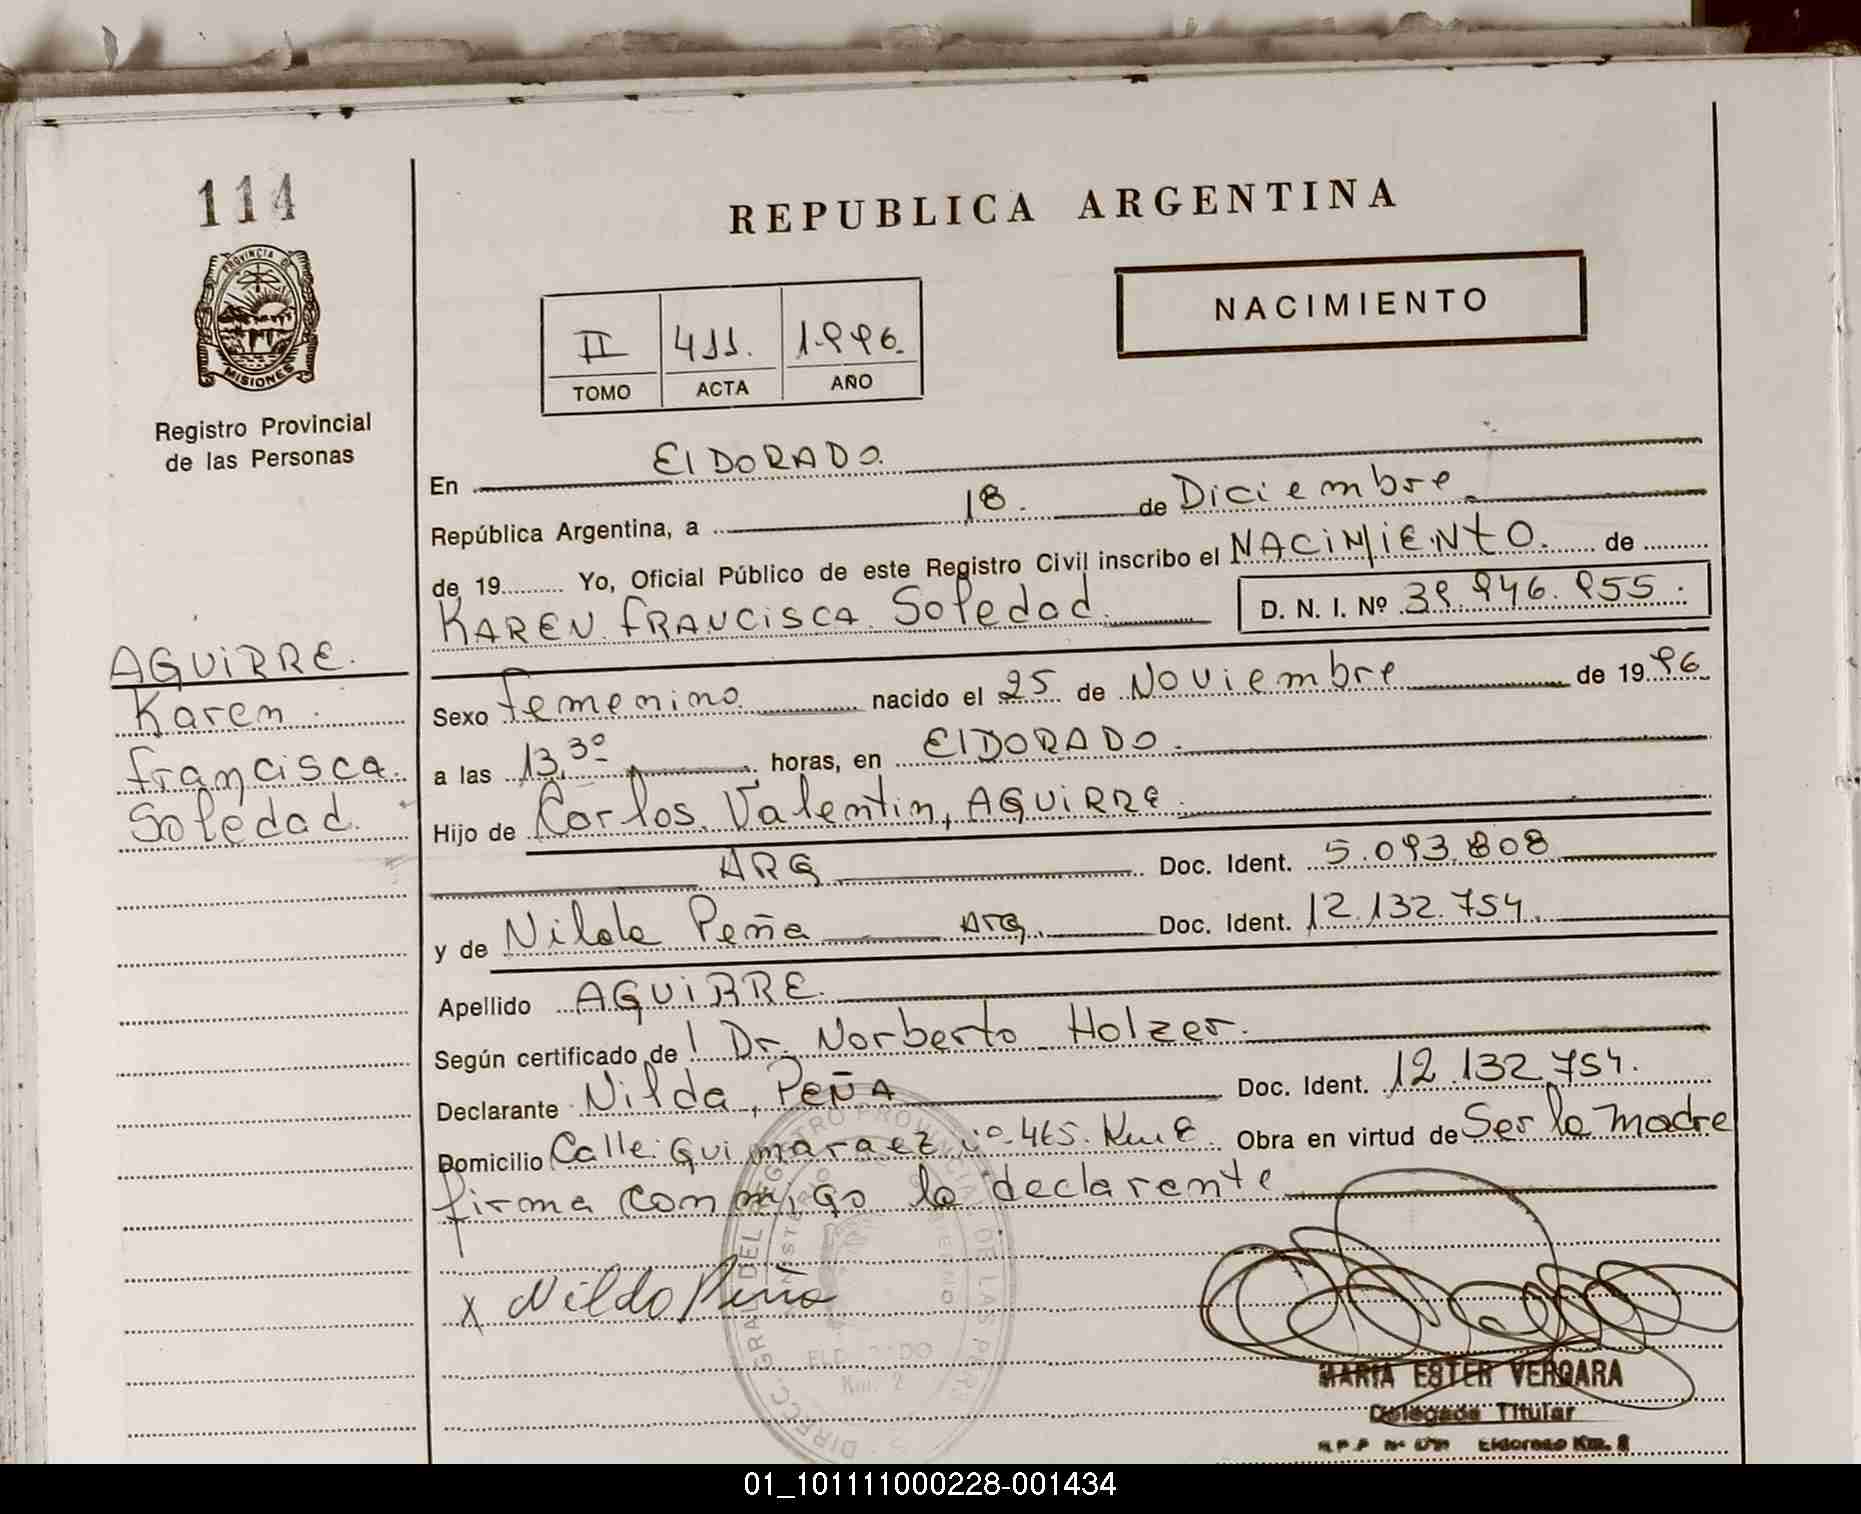 114
PROVINCIA DE
MISIONES
Registro Provincial
de las Personas
REPUBLICA ARGENTINA
NACIMIENTO
II 411. 1996.
TOMO ACTA AÑO
En ElDORADO.
República Argentina, a 18. de Diciembre
de 19 Yo, Oficial Público de este Registro Civil inscribo el NACIMIENTO. de
KAREN FRANCISCA Soledad. D. N. I. Nº 39.946.955.
AGUIRRE.
Karen
francisca.
Soledad.
Sexo femenino nacido el 25 de Noviembre de 1996
a las 13,30 horas, en ElDORADO.
Hijo de Carlos Valentin, AGUIRRE.
ARG Doc. Ident. 5.093.808
y de Nilda Peña Arg. Doc. Ident. 12.132.754.
Apellido AGUIRRE.
Según certificado de Dr. Norberto Holzer.
Declarante Nilda, PEÑA Doc. Ident. 12.132.754.
Domicilio Calle: Guimaraez nº 465. Obra en virtud de Ser la madre
firma conmigo la declarente
x Nilda Peña
DIRECC. GRAL. DEL REGISTRO PROVINCIAL DE LAS PERS
MINISTERIO GOBIERNO
Km. 2
MARIA ESTER VERGARA
Delegada Titular
Eldorado Km.
01_101111000228-001434